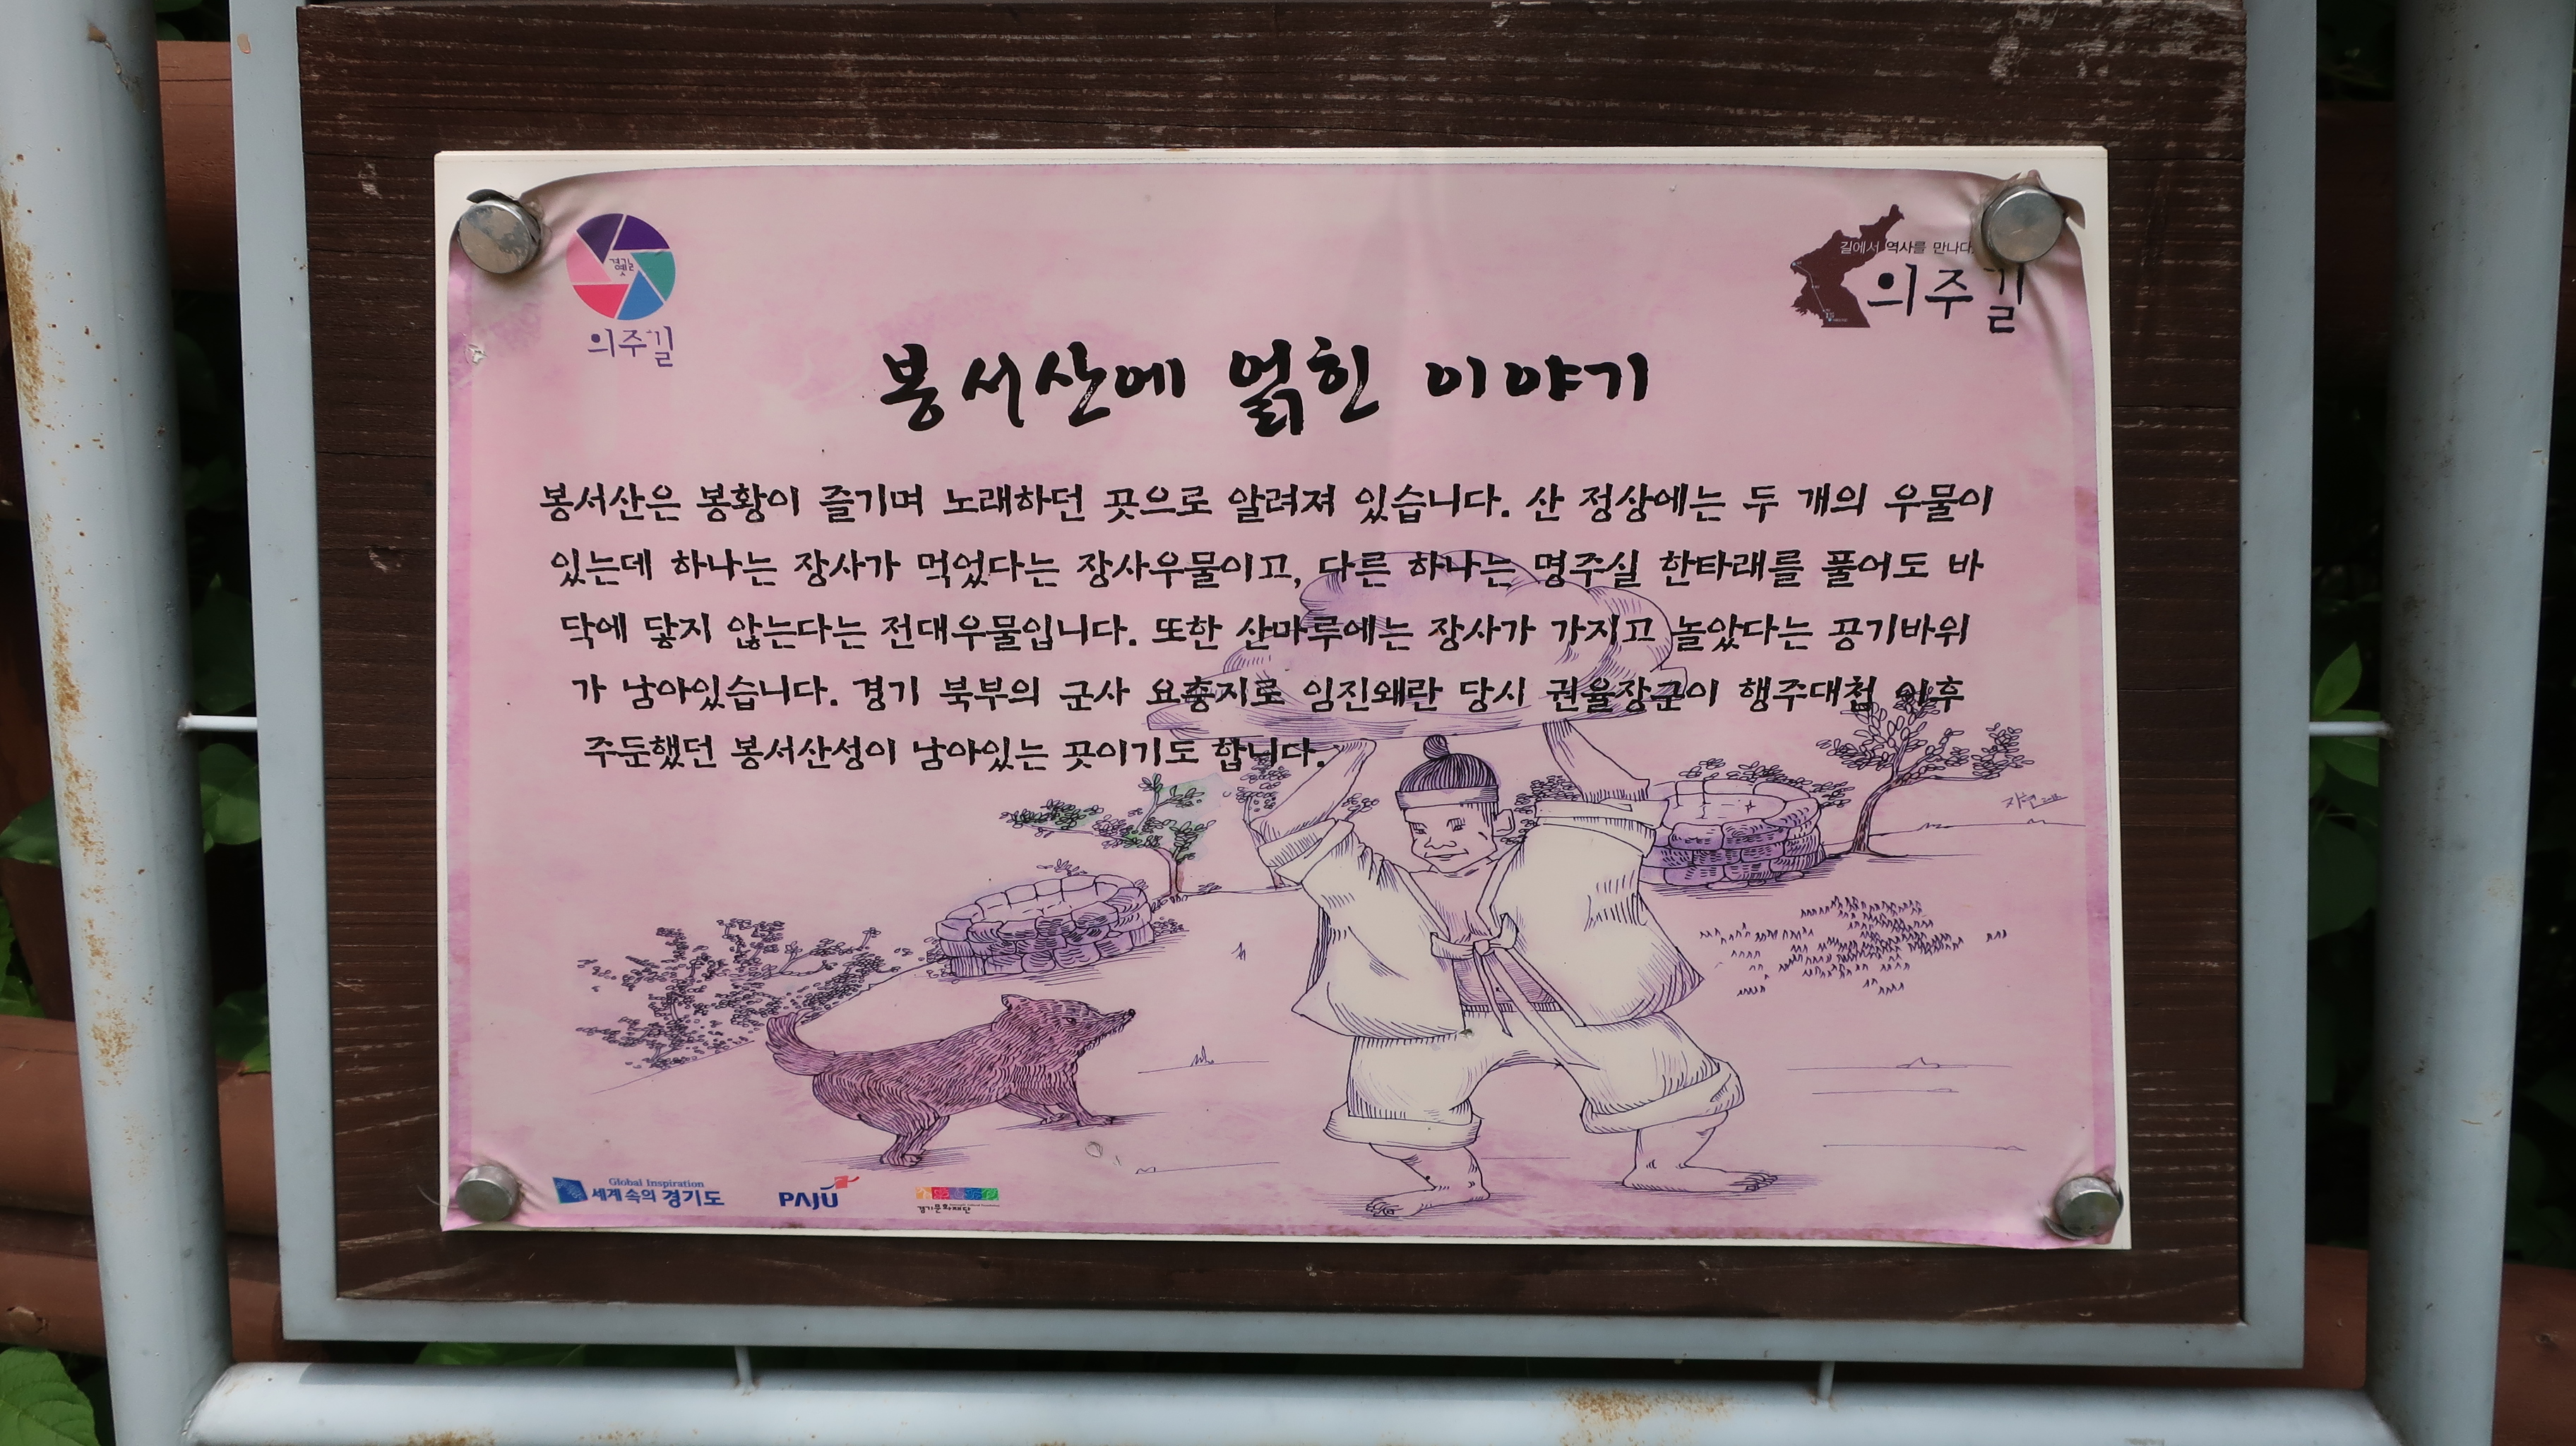 경기옛길
의주길
길에서 역사를 만나다
의주길
봉서산에 얽힌 이야기
봉서산은 봉황이 즐기며 노래하던 곳으로 알려져 있습니다. 산 정상에는 두 개의 우물이
있는데 하나는 장사가 먹었다는 장사우물이고, 다른 하나는 명주실 한타래를 풀어도 바
닥에 닿지 않는다는 전대우물입니다. 또한 산마루에는 장사가 가지고 놀았다는 공기바위
가 남아있습니다. 경기 북부의 군사 요충지로 임진왜란 당시 권율장군이 행주대첩 이후
주둔했던 봉서산성이 남아있는 곳이기도 합니다.
Global Inspiration
세계 속의 경기도
PAJU
경기문화재단